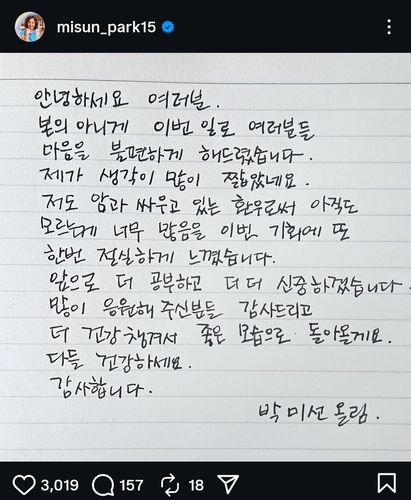 misun_park15
안녕하세요 여러분.
본의 아니게 이번 일로 여러분들
마음을 불편하게 해드렸습니다.
제가 생각이 많이 짧았네요.
저도 암과 싸우고 있는 환우로써 아직도
모르는게 너무 많음을 이번 기회에 또
한번 절실하게 느꼈습니다.
앞으로 더 공부하고 더 더 신중하겠습니다
많이 응원해 주신분들 감사드리고
더 건강챙겨서 좋은 모습으로 돌아올게요.
다들 건강하세요.
감사합니다.
박미선 올림.
3,019 157 18